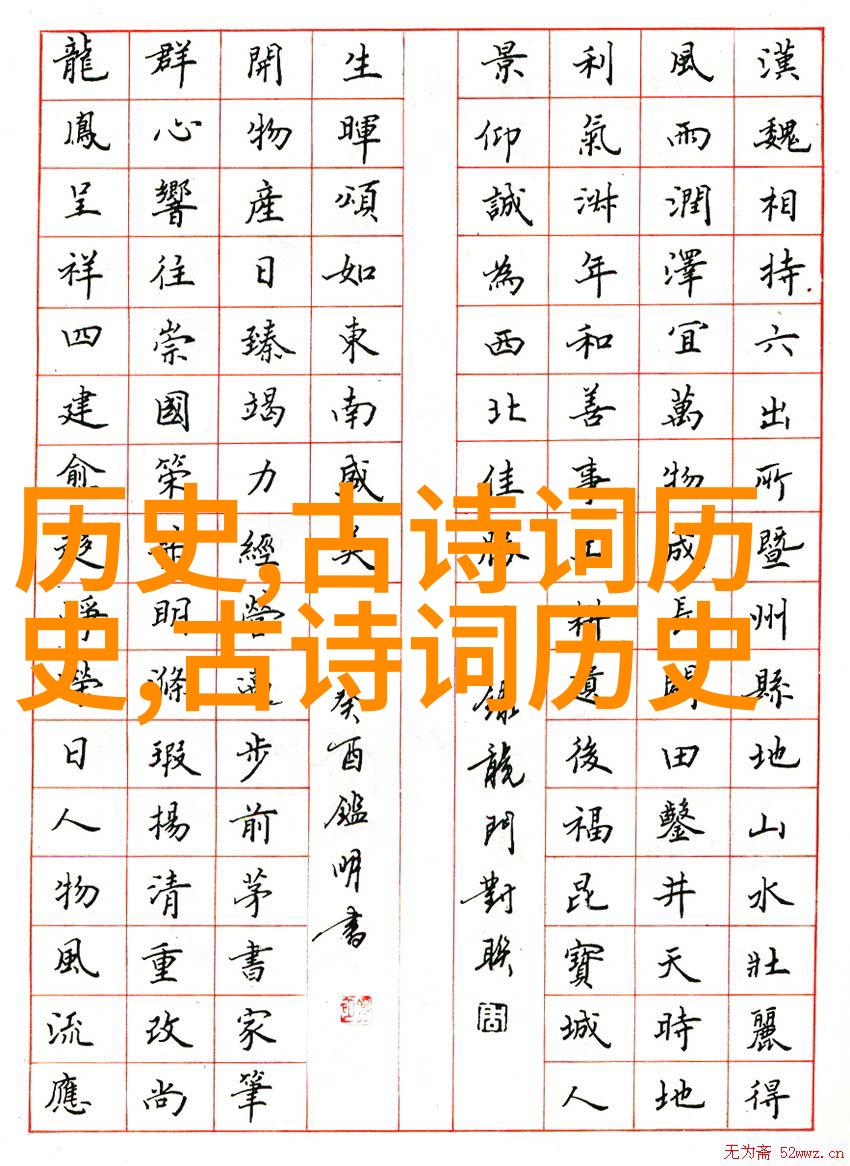 漢魏相持六出所暨州縣地山水壯麗得
風雨潤澤宜萬物成長開田鑿井天時地
利氣淋年和善事工耕遺後福昆寶城人
景仰誠為西北佳勝
錄龍門對聯
生暉頌如東南威吳
癸酉鑑明書
開物産日臻竭力經營邁步前茅書家筆
群心響往崇國榮 明滌瑕揚清重改尚
龍鳳呈祥四建俞 崢嶸日人物風流應
历史,古诗词历
史,古诗词历史
无为斋 52wwz.cn